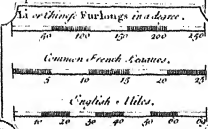 Li or Chinese Furlongs in a degree.
50 100 150 200 250
Common French Leagues.
5 10 15 20 25
English Miles.
10 20 30 40 50 60 69